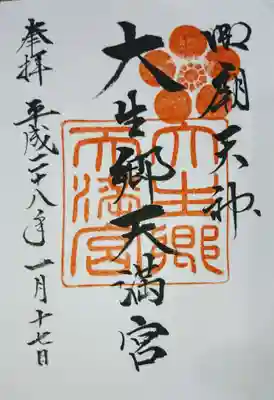 御廟天神
大生郷天満宮
奉拝 平成二十八年 一月十七日
大生郷
天満宮